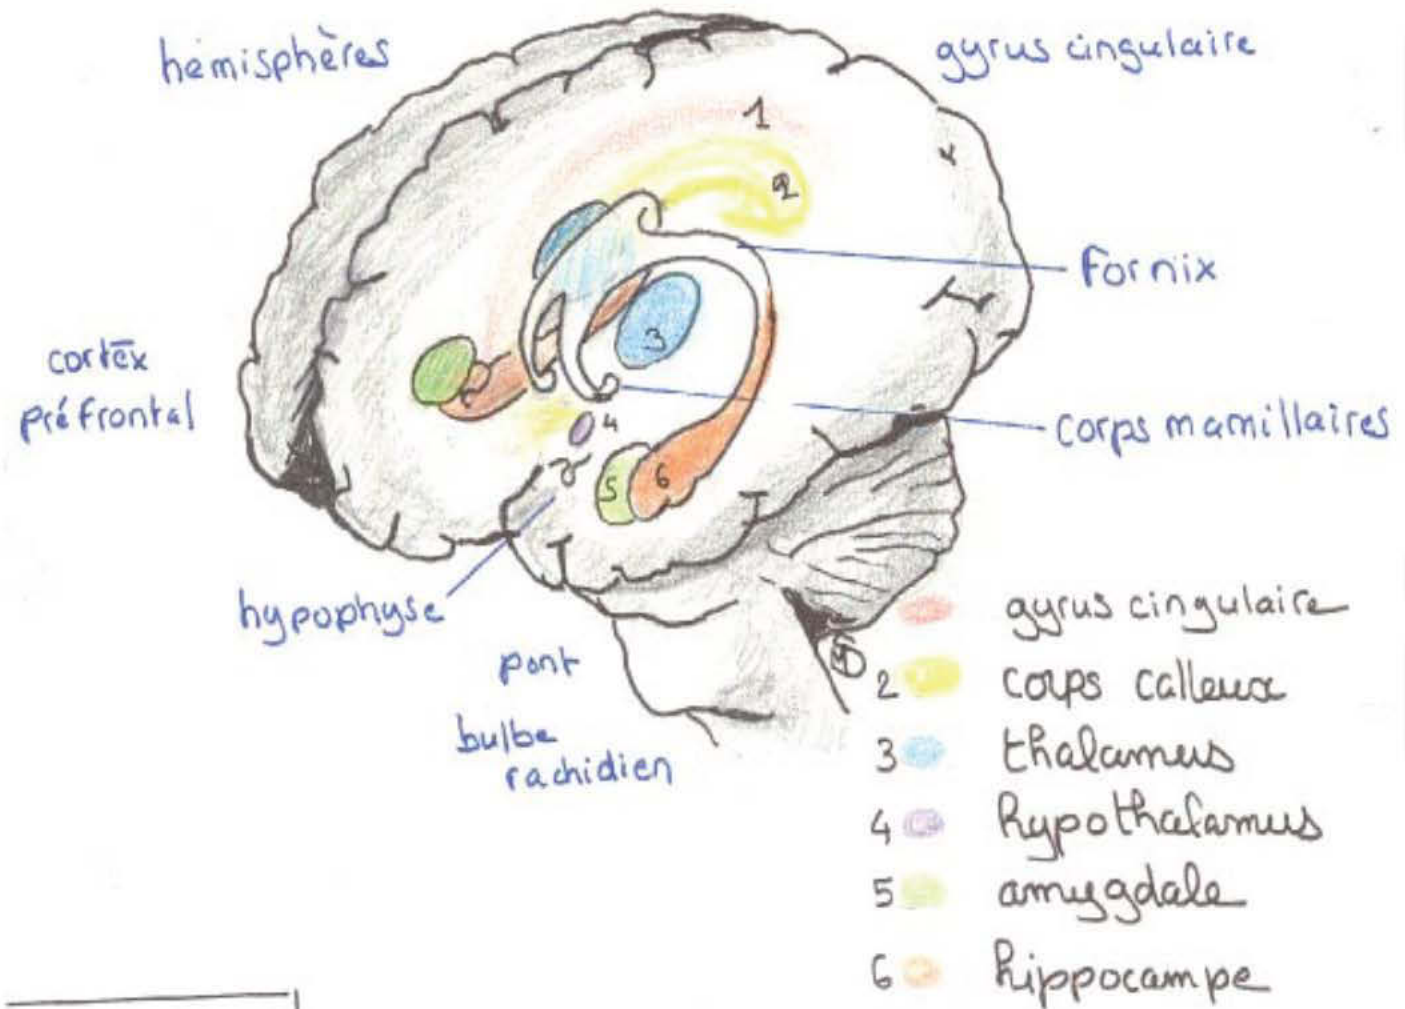 hémisphères
gyrus cingulaire
1
2
Fornix
3
cortex
préfrontal
4
corps mamillaires
5
6
hypophyse
pont
bulbe
rachidien
gyrus cingulaire
2 corps calleux
3 thalamus
4 hypothalamus
5 amygdale
6 hippocampe